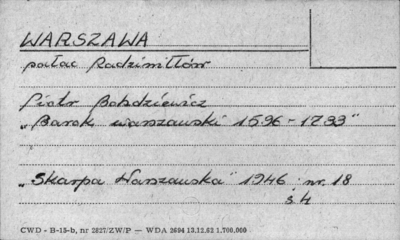 WARSZAWA
pałac Radziwiłłów
Piotr Bohdziewicz
"Barok warszawski 1596-1793"
"Skarpa Warszawska" 1946 nr. 18
s. 4
CWD - B-15-b, nr 2827/ZW/P — WDA 2694 13.12.62 1.700.000